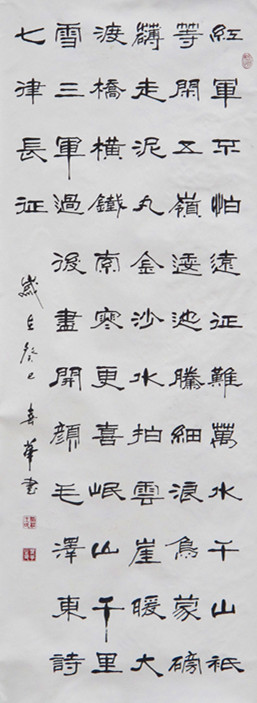 紅軍不怕遠征難萬水千山祇
等閑五嶺逶迤騰細浪烏蒙磅
礴走泥丸金沙水拍雲崖暖大
渡橋橫鐵索寒更喜岷山千里
雪三軍過後盡開顏毛澤東詩
七律長征
歲在癸巳華書